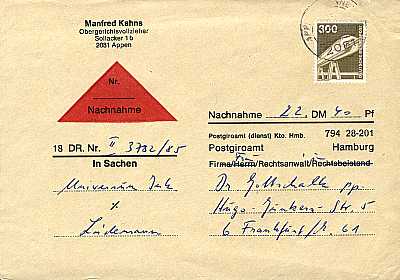 Manfred Kahns
Obergerichtsvollzieher
Sollacker 1b
2081 Appen
300
Nr.
Nachnahme
Nachnahme 22 DM 40 Pf
Postgiroamt (dienst) Kto. Hmb. 794 28-201
Postgiroamt Hamburg
18 DR. Nr. II 3732/85
Firma/Herrn/Rechtsanwalt/Rechtsbeistand
In Sachen
Dr. Gottschalk pp.
Hugo-Junkers-Str. 5
Lüdemann
6 Frankfurt/M. 61